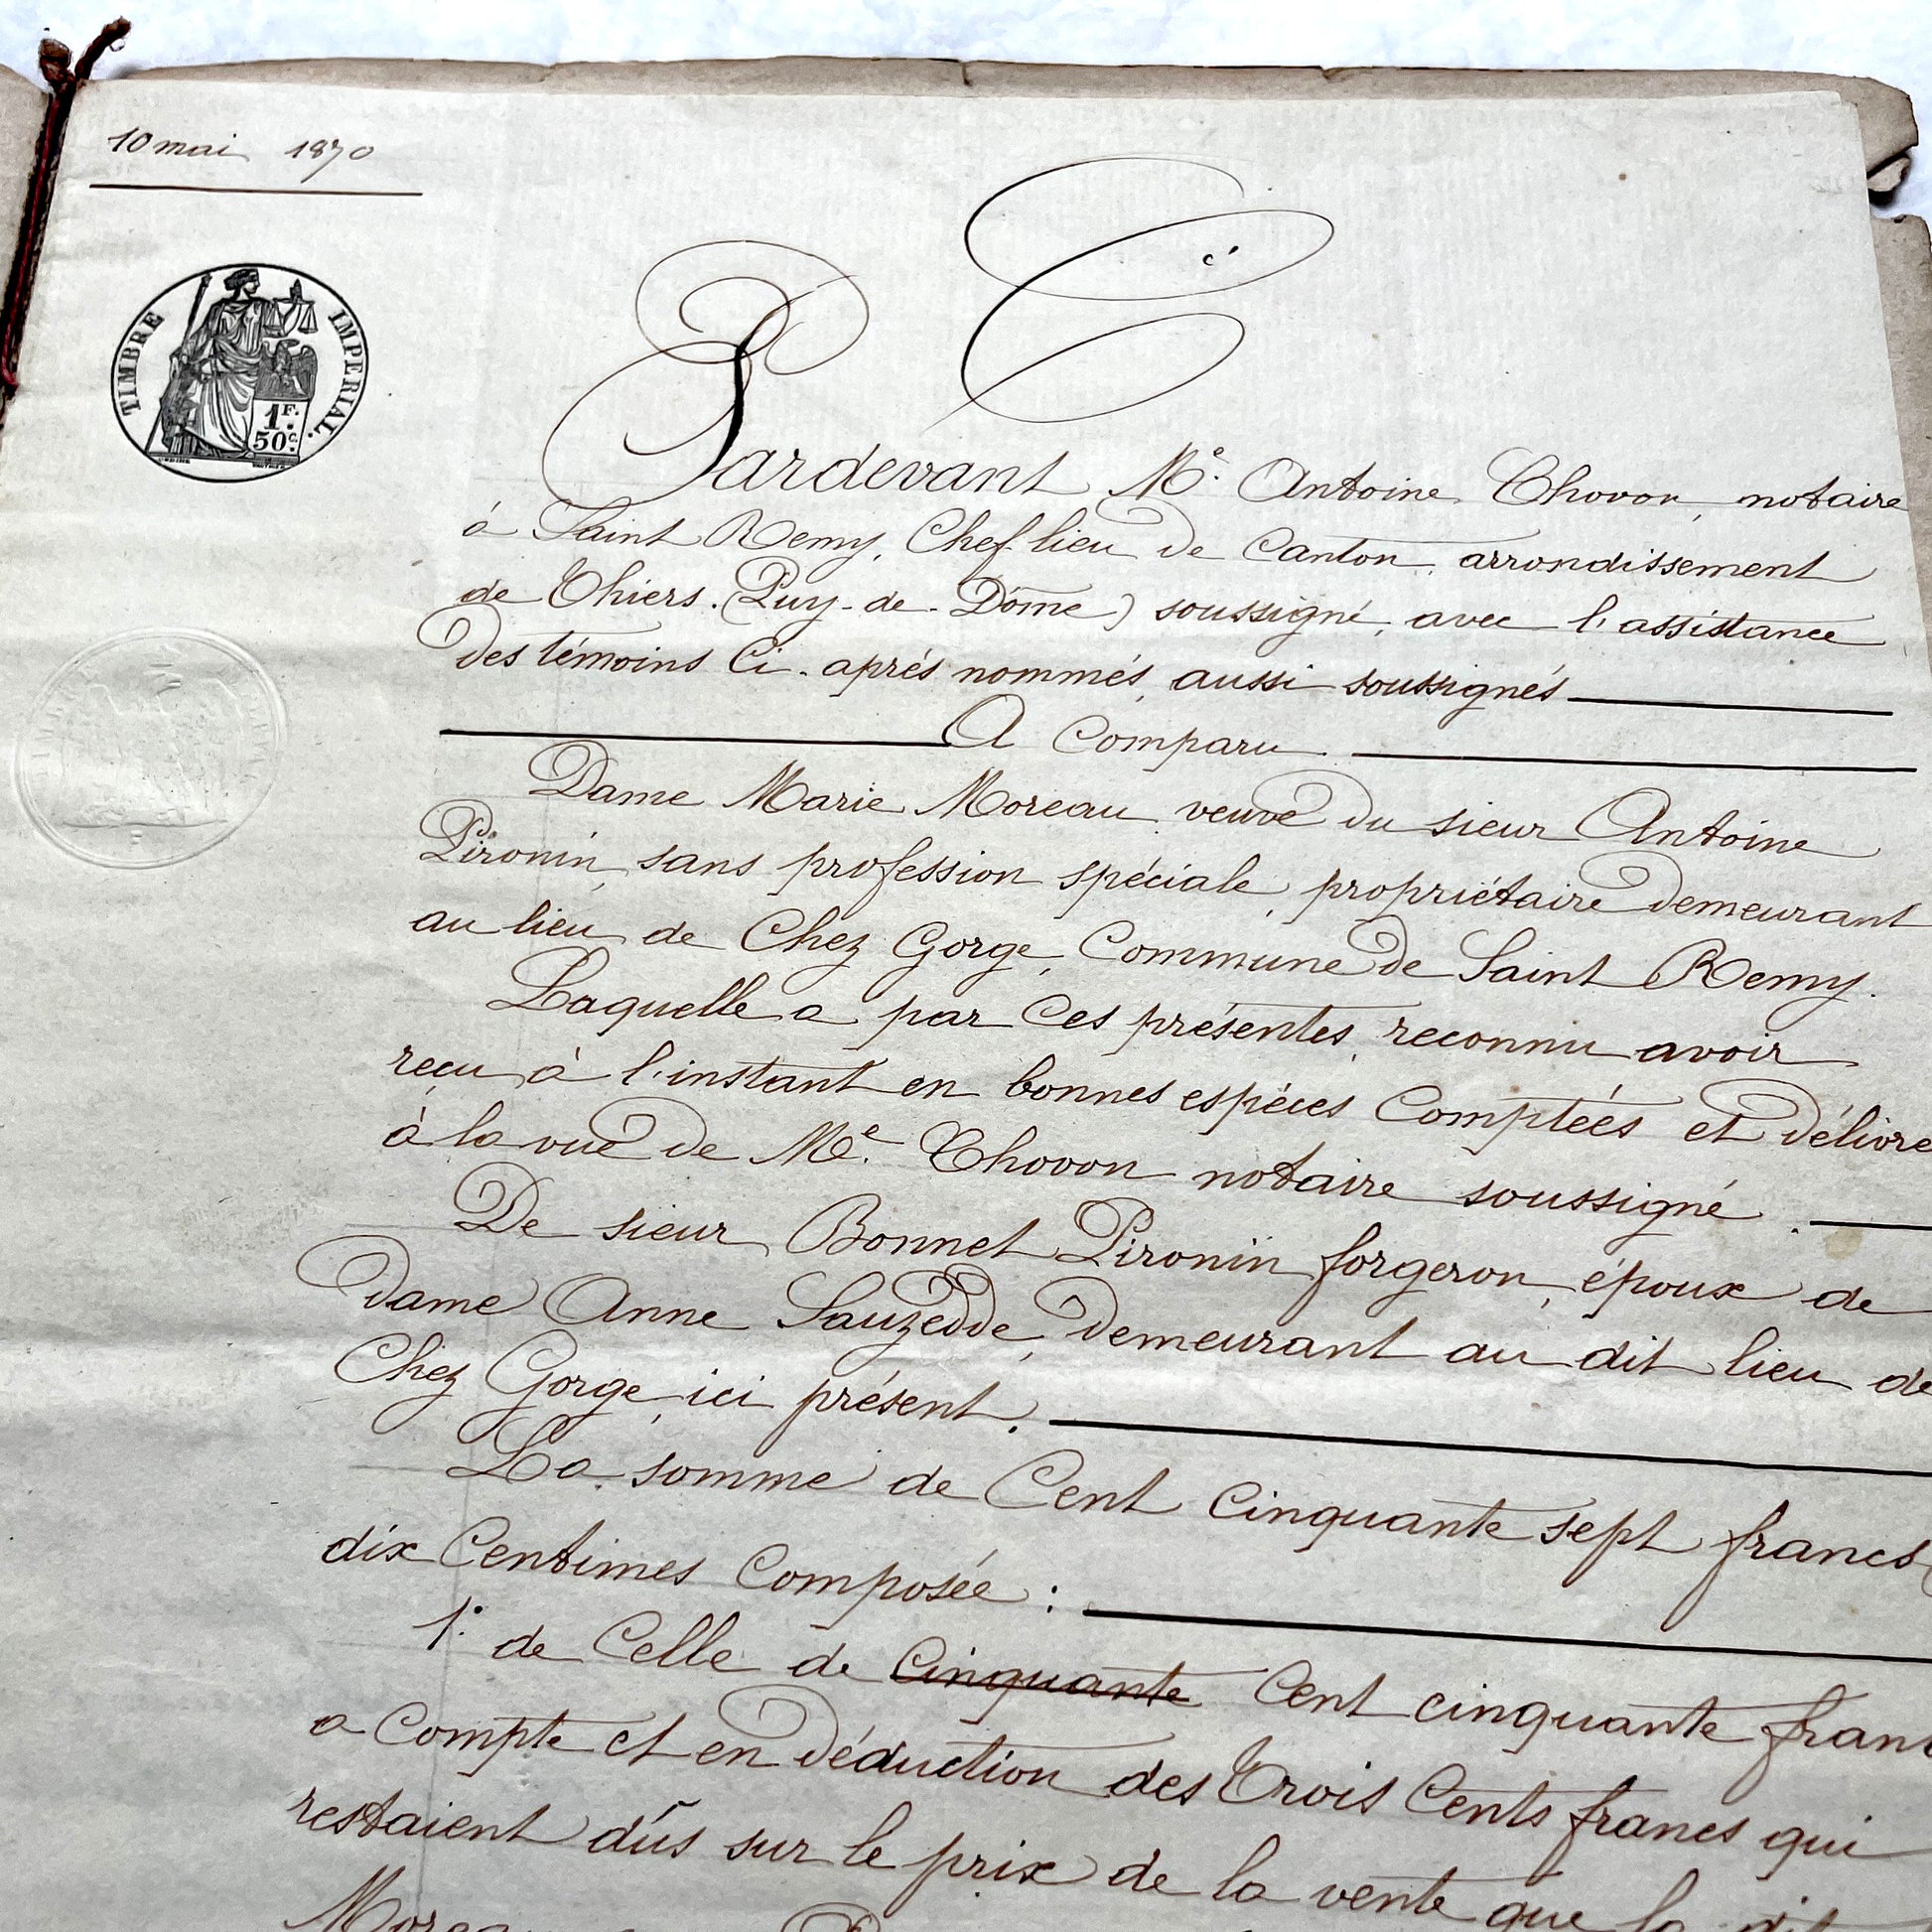 10 mai 1870
TIMBRE IMPERIAL.
1F.
50c.
Pardevant Me. Antoine Chovon, notaire
à Saint Remy, Chef lieu de Canton, arrondissement
de Thiers. (Puy-de-Dôme) soussigné, avec l'assistance
des témoins Ci-après nommés, aussi soussignés
A Comparu.
Dame Marie Moreau veuve du sieur Antoine
Pironin, sans profession spéciale, propriétaire demeurant
au lieu de Chez Gorge, Commune de Saint Remy.
Laquelle a par Ces présentes, reconnu avoir
reçu à l'instant en bonnes espèces Comptées et délivré
à la vue de Me. Chovon notaire soussigné.
De sieur Bonnet Pironin forgeron, époux de
dame Anne Sauzedde, demeurant au dit lieu de
Chez Gorge, ici présent.
La somme de Cent Cinquante sept francs
dix Centimes Composée :
1° de Celle de Cinquante Cent cinquante franc
a Compte et en déduction des Trois Cents francs qui
restaient dûs sur le prix de la vente que la dit